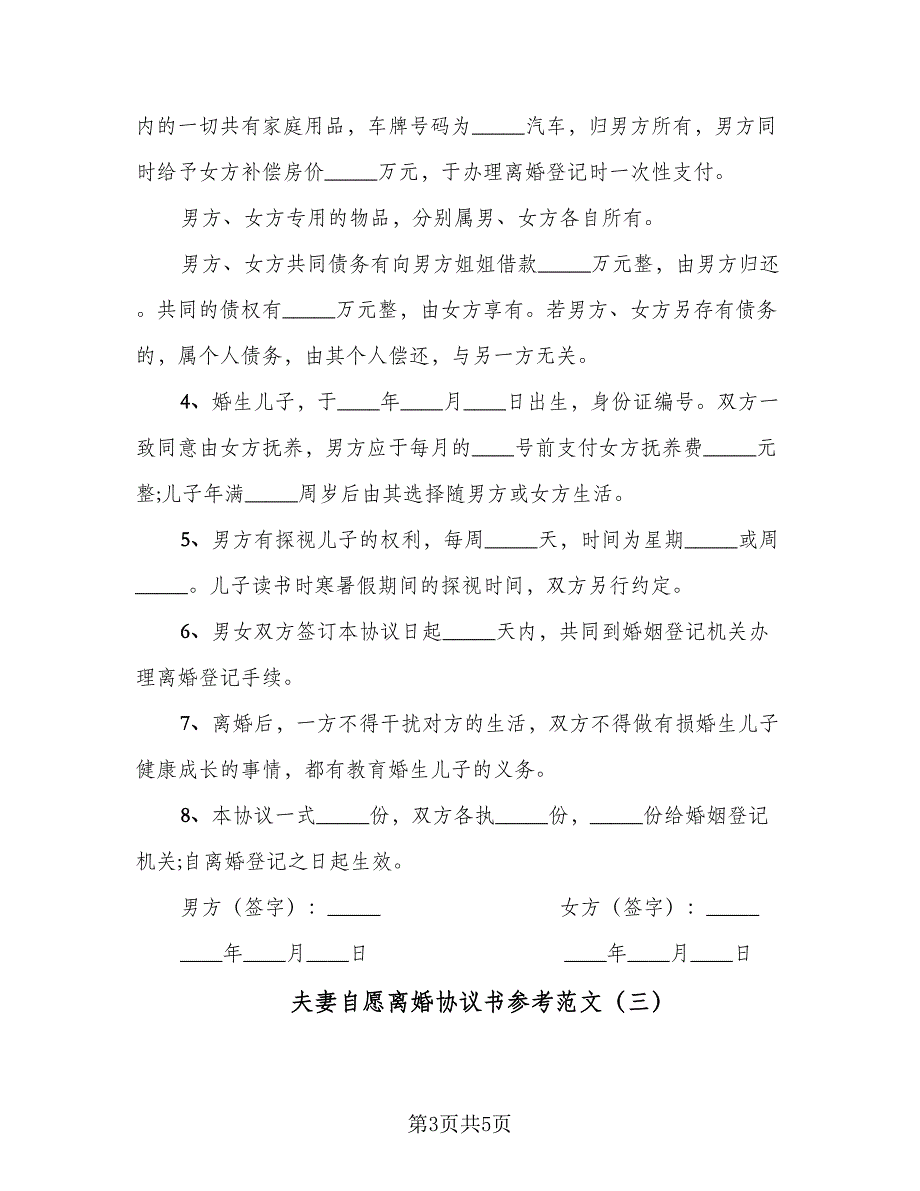 内的一切共有家庭用品，车牌号码为_____汽车，归男方所有，男方同
时给予女方补偿房价_____万元，于办理离婚登记时一次性支付。
男方、女方专用的物品，分别属男、女方各自所有。
男方、女方共同债务有向男方姐姐借款_____万元整，由男方归还
。共同的债权有_____万元整，由女方享有。若男方、女方另存有债务
的，属个人债务，由其个人偿还，与另一方无关。
4、婚生儿子，于____年____月____日出生，身份证编号。双方一
致同意由女方抚养，男方应于每月的____号前支付女方抚养费_____元
整;儿子年满_____周岁后由其选择随男方或女方生活。
5、男方有探视儿子的权利，每周_____天，时间为星期_____或周
_____。儿子读书时寒暑假期间的探视时间，双方另行约定。
6、男女双方签订本协议日起_____天内，共同到婚姻登记机关办
理离婚登记手续。
7、离婚后，一方不得干扰对方的生活，双方不得做有损婚生儿子
健康成长的事情，都有教育婚生儿子的义务。
8、本协议一式_____份，双方各执_____份，_____份给婚姻登记
机关;自离婚登记之日起生效。
男方（签字）：_____ 女方（签字）：_____
____年____月____日 ____年____月____日
夫妻自愿离婚协议书参考范文（三）
第3页共5页